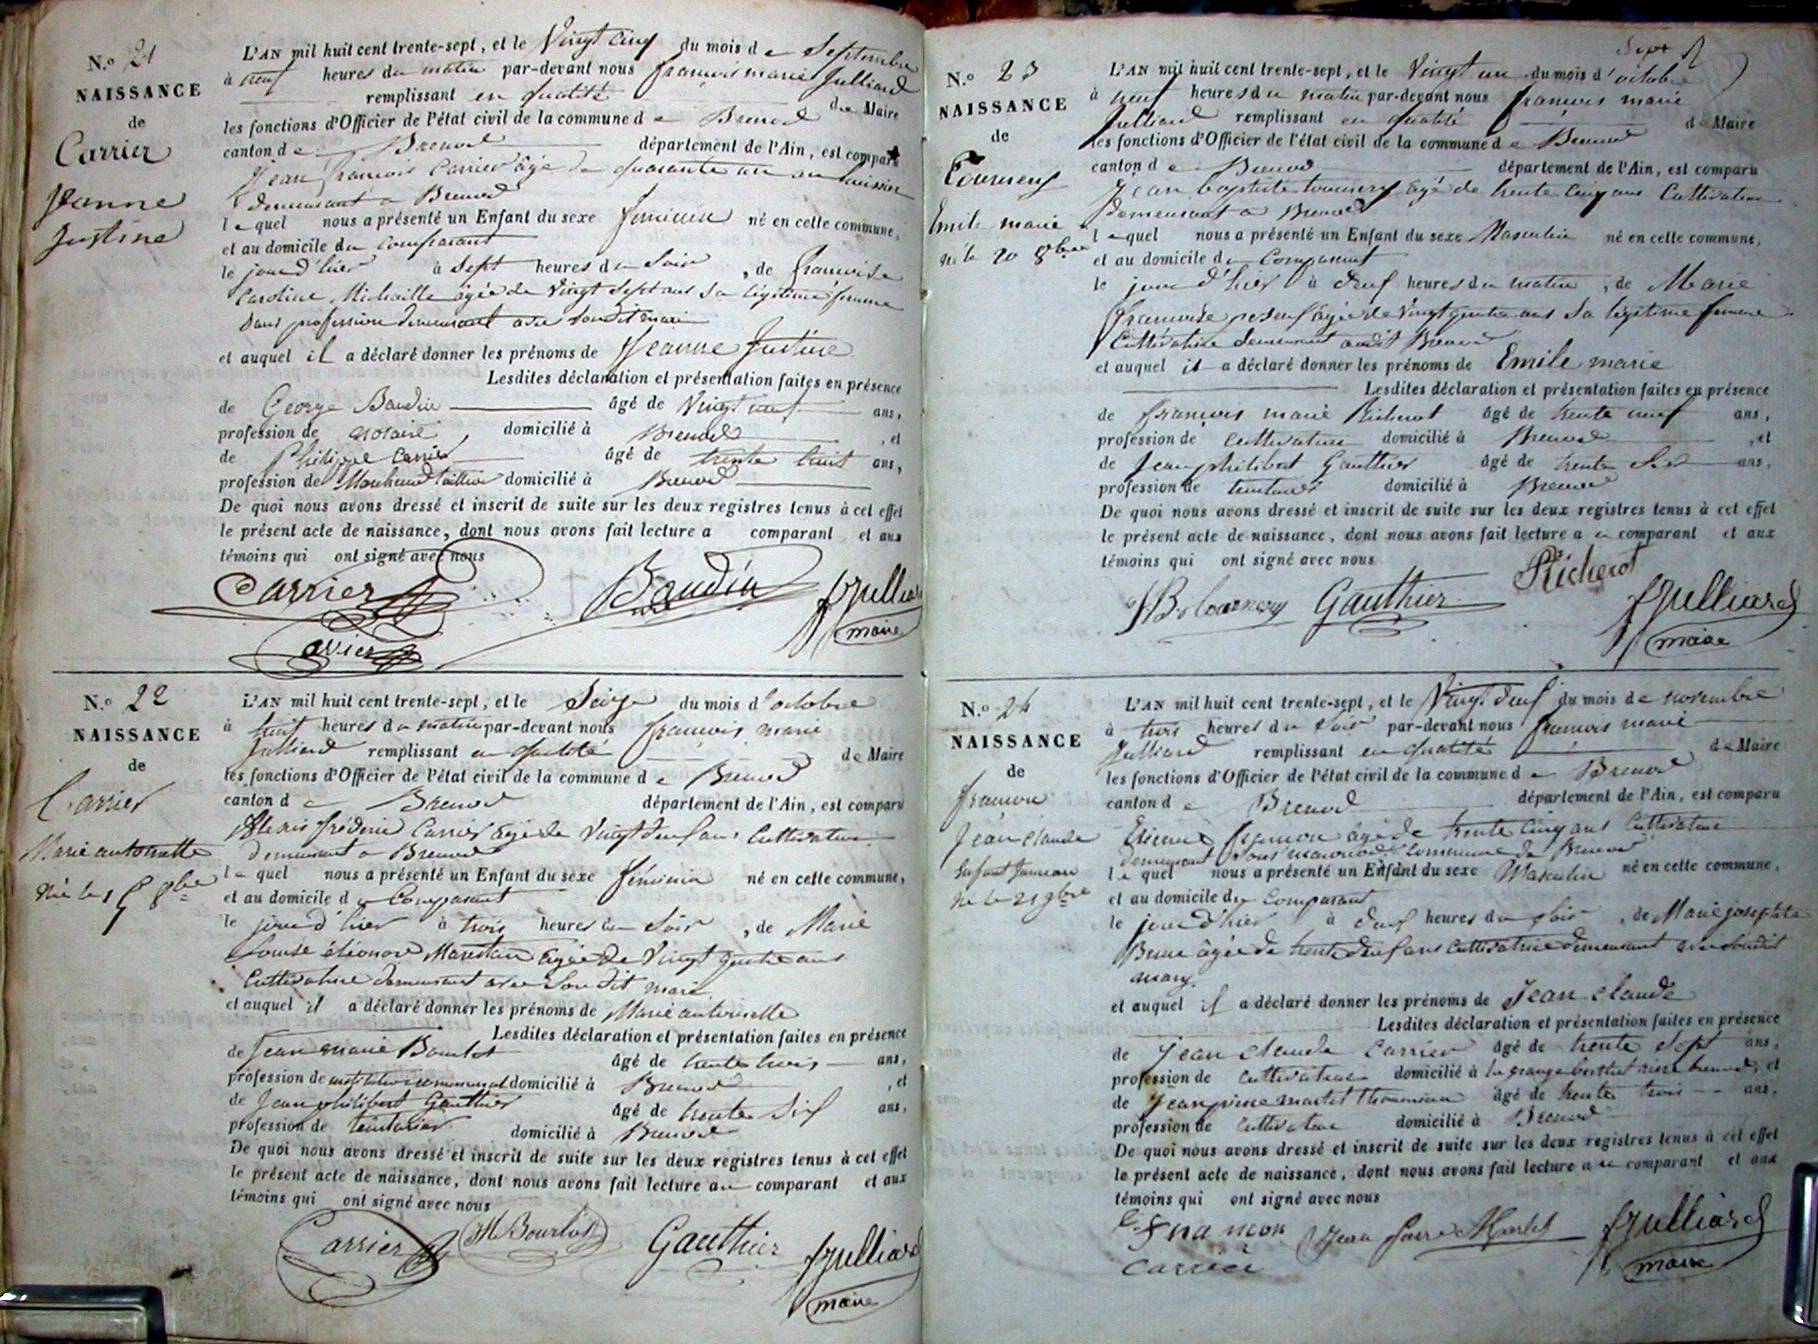 N.º 21
NAISSANCE
de
Carrier
Jeanne
Justine
L'AN mil huit cent trente-sept, et le Vingt cinq du mois de Septembre
à neuf heures du matin par-devant nous françois marie Julliard
remplissant en qualité de Maire
les fonctions d'Officier de l'état civil de la commune de Brenod
canton de Brenod département de l'Ain, est comparu
Jean françois Carrier âgé de quarante un an huissier
demeurant a Brenod
lequel nous a présenté un Enfant du sexe feminin né en cette commune,
et au domicile du comparant
le jour d'hier à Sept heures du Soir, de françoise
Caroline Michaille âgée de Vingt Sept ans Sa légitime femme
Sans profession demeurant avec Sondit mari
et auquel il a déclaré donner les prénoms de Jeanne Justine
Lesdites déclaration et présentation faites en présence
de George Baudin âgé de Vingt neuf ans,
profession de notaire, domicilié à Brenod, et
de Philippe Carrier âgé de trente huit ans,
profession de Marchand tailleur domicilié à Brenod
De quoi nous avons dressé et inscrit de suite sur les deux registres tenus à cet effet
le présent acte de naissance, dont nous avons fait lecture a comparant et aux
témoins qui ont signé avec nous
Carrier Baudin fJulliard
maire
Carrier
N.º 22
NAISSANCE
de
Carrier
Marie antoinette
Née le 15 8bre
L'AN mil huit cent trente-sept, et le Seize du mois d'octobre
à huit heures du matin par-devant nous françois marie
Julliard remplissant en qualité de Maire
les fonctions d'Officier de l'état civil de la commune de Brenod
canton de Brenod département de l'Ain, est comparu
Alexis frédéric Carrier âgé de Vingt neuf ans Cultivateur
demeurant a Brenod
lequel nous a présenté un Enfant du sexe féminin né en cette commune,
et au domicile du Comparant
le jour d'hier à trois heures du Soir, de Marie
Louise éléonore âgée de Vingt quatre ans
Cultivatrice demeurant avec Son dit mari
et auquel il a déclaré donner les prénoms de Marie antoinette
Lesdites déclaration et présentation faites en présence
de Jean marie Bourlot âgé de trente trois ans,
profession de instituteur communal domicilié à Brenod, et
de Jean philibert Gauthier âgé de trente Six ans,
profession de teinturier domicilié à Brenod
De quoi nous avons dressé et inscrit de suite sur les deux registres tenus à cet effet
le présent acte de naissance, dont nous avons fait lecture au comparant et aux
témoins qui ont signé avec nous
Carrier JM Bourlot Gauthier fJulliard
maire
Sept
N.º 23
NAISSANCE
de
Tournery
Emile marie
né le 20 8bre
L'AN mil huit cent trente-sept, et le Vingt un du mois d'octobre
à neuf heures du matin par-devant nous françois marie
Julliard remplissant en qualité de Maire
les fonctions d'Officier de l'état civil de la commune de Brenod
canton de Brenod département de l'Ain, est comparu
Jean baptiste tournery âgé de trente cinq ans Cultivateur
demeurant a Brenod
lequel nous a présenté un Enfant du sexe Masculin né en cette commune,
et au domicile du Comparant
le jour d'hier à neuf heures du matin, de Marie
françoise âgée de Vingt quatre ans Sa légitime femme
Cultivatrice demeurant audit Brenod
et auquel il a déclaré donner les prénoms de Emile marie
Lesdites déclaration et présentation faites en présence
de françois marie Richerot âgé de trente neuf ans,
profession de cultivateur domicilié à Brenod, et
de Jean philibert Gauthier âgé de trente Six ans,
profession de teinturier domicilié à Brenod
De quoi nous avons dressé et inscrit de suite sur les deux registres tenus à cet effet
le présent acte de naissance, dont nous avons fait lecture au comparant et aux
témoins qui ont signé avec nous
JB tournery Gauthier Richerot fJulliard
maire
N.º 24
NAISSANCE
de
framon
Jean Claude
Enfant Jumeau
né le 21 9bre
L'AN mil huit cent trente-sept, et le Vingt deux du mois de novembre
à trois heures du Soir par-devant nous françois marie
Julliard remplissant en qualité de Maire
les fonctions d'Officier de l'état civil de la commune de Brenod
canton de Brenod département de l'Ain, est comparu
Etienne framon âgé de trente cinq ans Cultivateur
demeurant commune de Brenod
lequel nous a présenté un Enfant du sexe Masculin né en cette commune,
et au domicile du Comparant
le jour d'hier à deux heures du Soir, de Marie josephte
âgée de trente deux ans Cultivatrice demeurant avec Sondit
mary
et auquel il a déclaré donner les prénoms de Jean Claude
Lesdites déclaration et présentation faites en présence
de Jean Claude Carrier âgé de trente Sept ans,
profession de Cultivateur domicilié à la grange, et
de Jean pierre martel âgé de trente trois ans,
profession de Cultivateur domicilié à Brenod
De quoi nous avons dressé et inscrit de suite sur les deux registres tenus à cet effet
le présent acte de naissance, dont nous avons fait lecture au comparant et aux
témoins qui ont signé avec nous
Jean pierre Martel fJulliard
Carrier maire